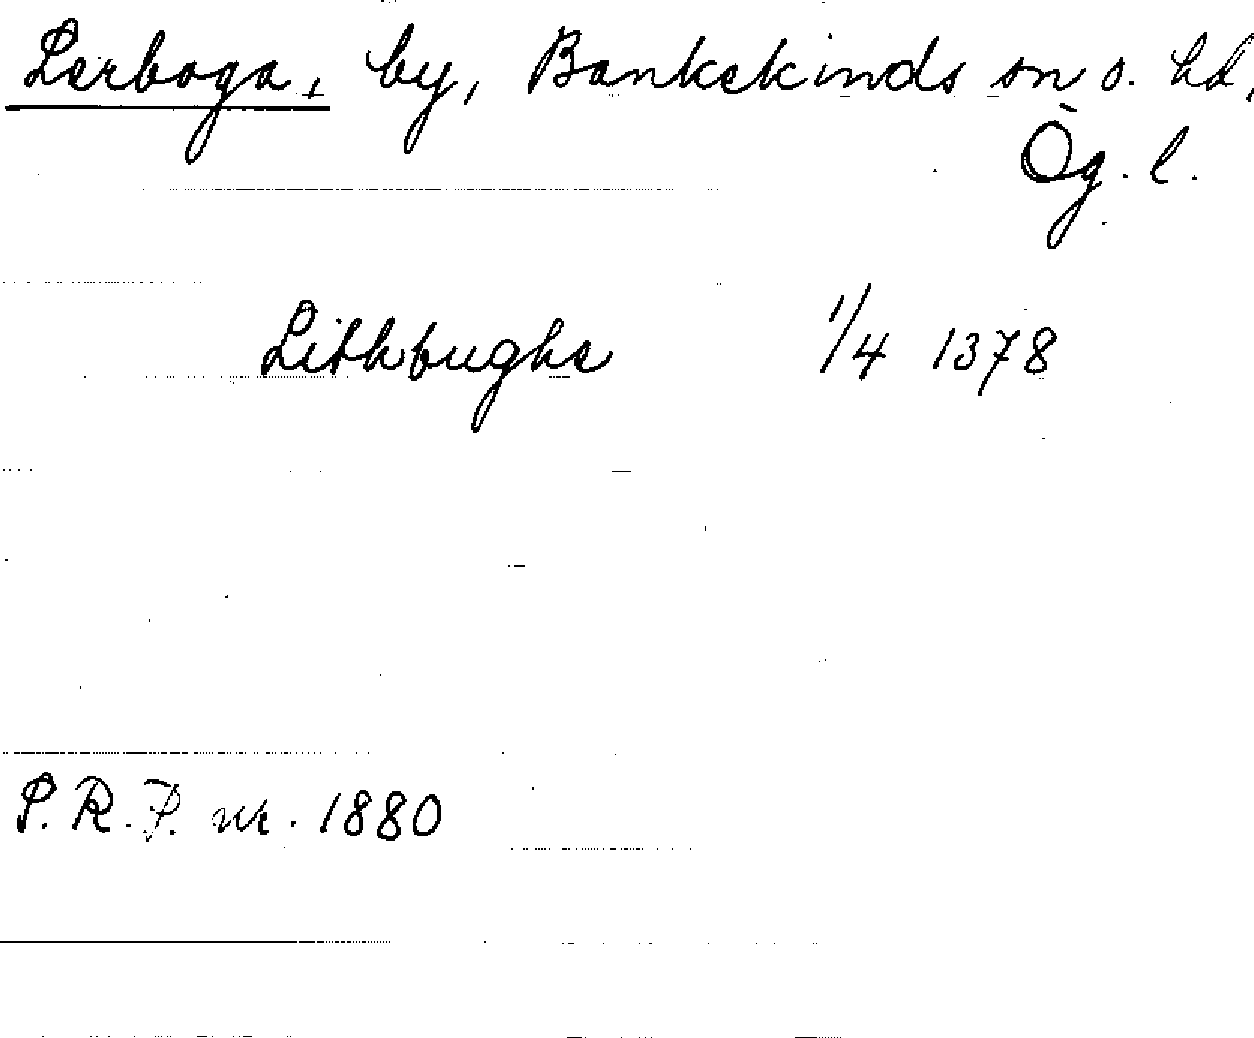 Lerboga, by, Bankekinds sn o. hd,
Ög. l.
Lithbughe 1/4 1378
P.R.P. nr. 1880